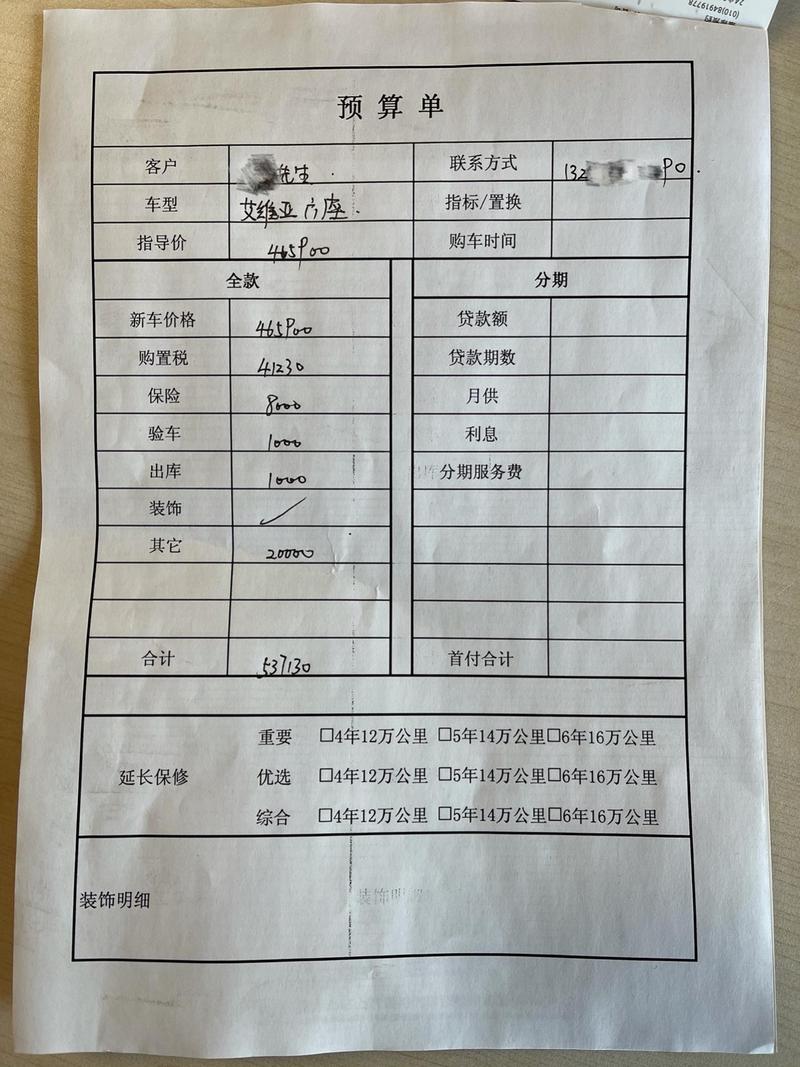 (010)84919778
预算单
客户 先生. 联系方式 132 90.
车型 艾维亚 六座. 指标/置换
指导价 465900 购车时间
全款 分期
新车价格 465900 贷款额
购置税 41230 贷款期数
保险 8000 月供
验车 1000 利息
出库 1000 分期服务费
装饰 ✓
其它 20000
合计 537130 首付合计
重要 □4年12万公里 □5年14万公里□6年16万公里
延长保修 优选 □4年12万公里 □5年14万公里□6年16万公里
综合 □4年12万公里 □5年14万公里□6年16万公里
装饰明细